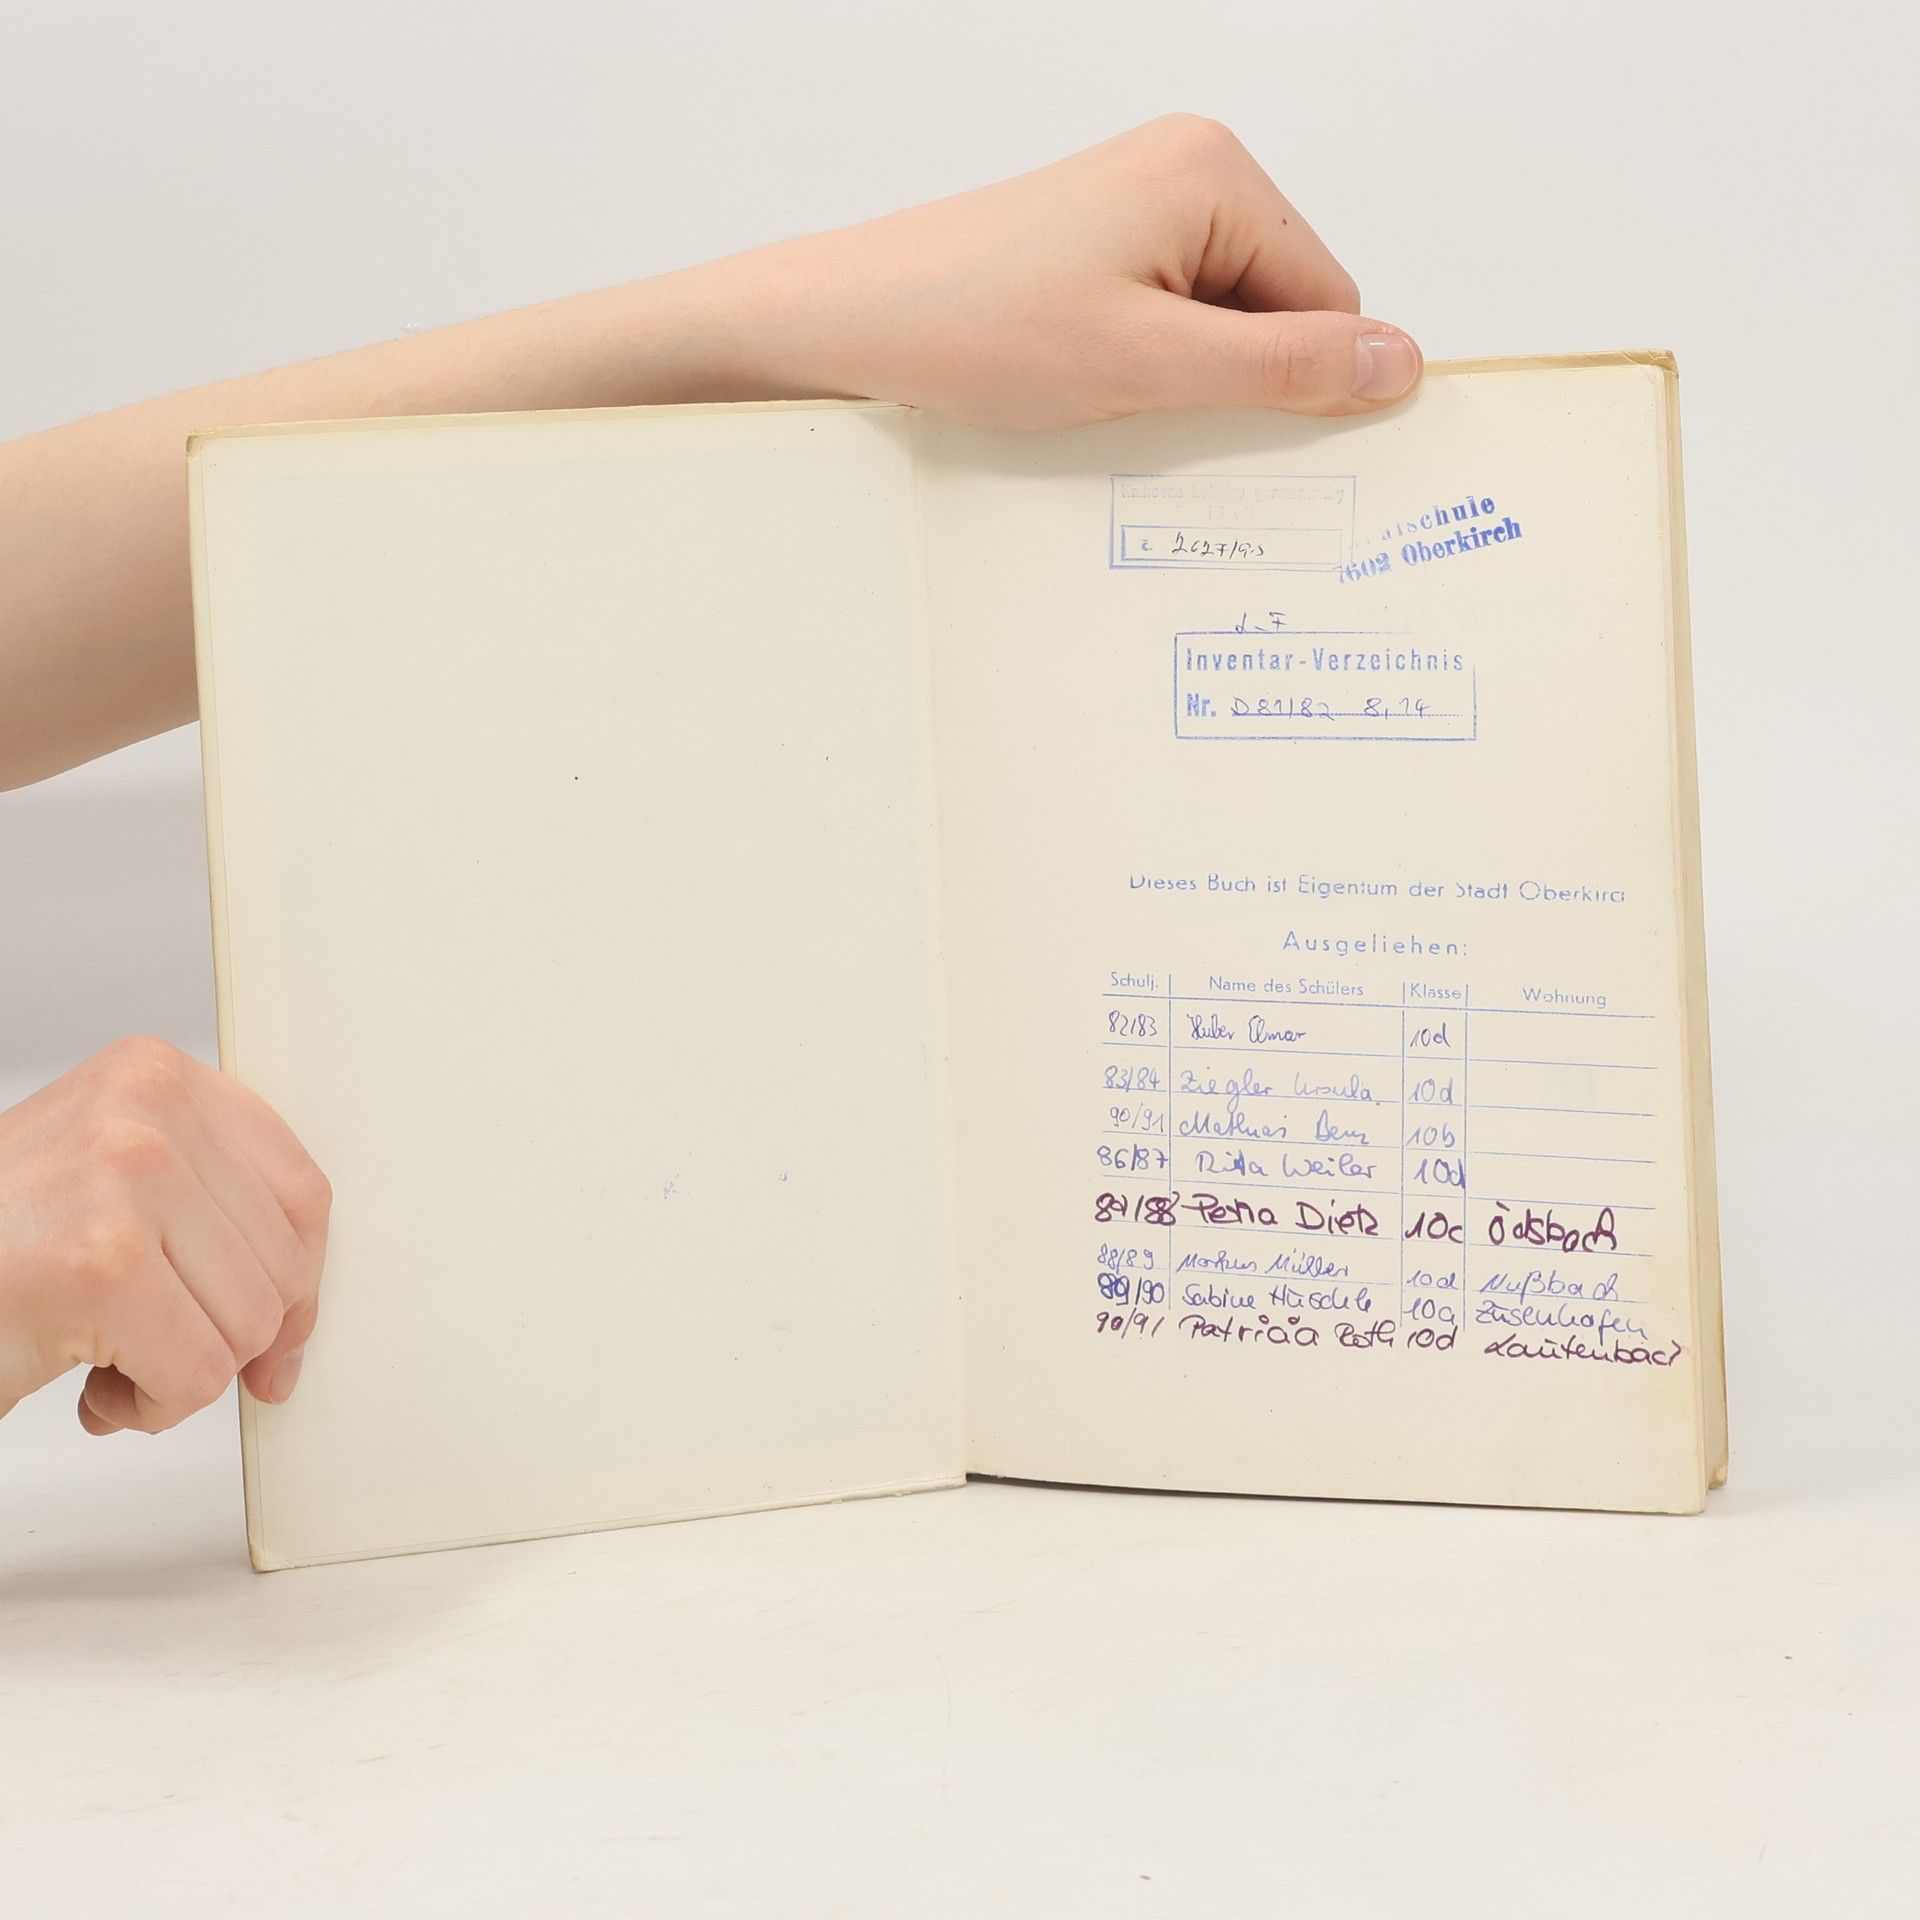 Knihovna katedry germanistiky
č. 2627/93
schule
7602 Oberkirch
L-F
Inventar-Verzeichnis
Nr. D 81/82 8,14
Dieses Buch ist Eigentum der Stadt Oberkirc
Ausgeliehen:
Schulj. Name des Schülers Klasse Wohnung
82/83 Huber Elmar 10d
83/84 Ziegler Ursula 10d
90/91 Mathias Benz 10b
86/87 Rita Weiler 10d
87/88 Petra Dietz 10c Ödsbach
88/89 Markus Müller 10d Nußbach
89/90 Sabine Huschle 10a Zusenhofen
90/91 Patricia Roth 10d Lautenbach